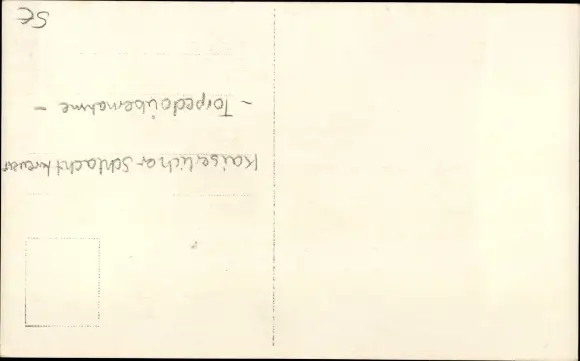 Kaiserlicher Schlachtkreuzer
- Torpedoübernahme -